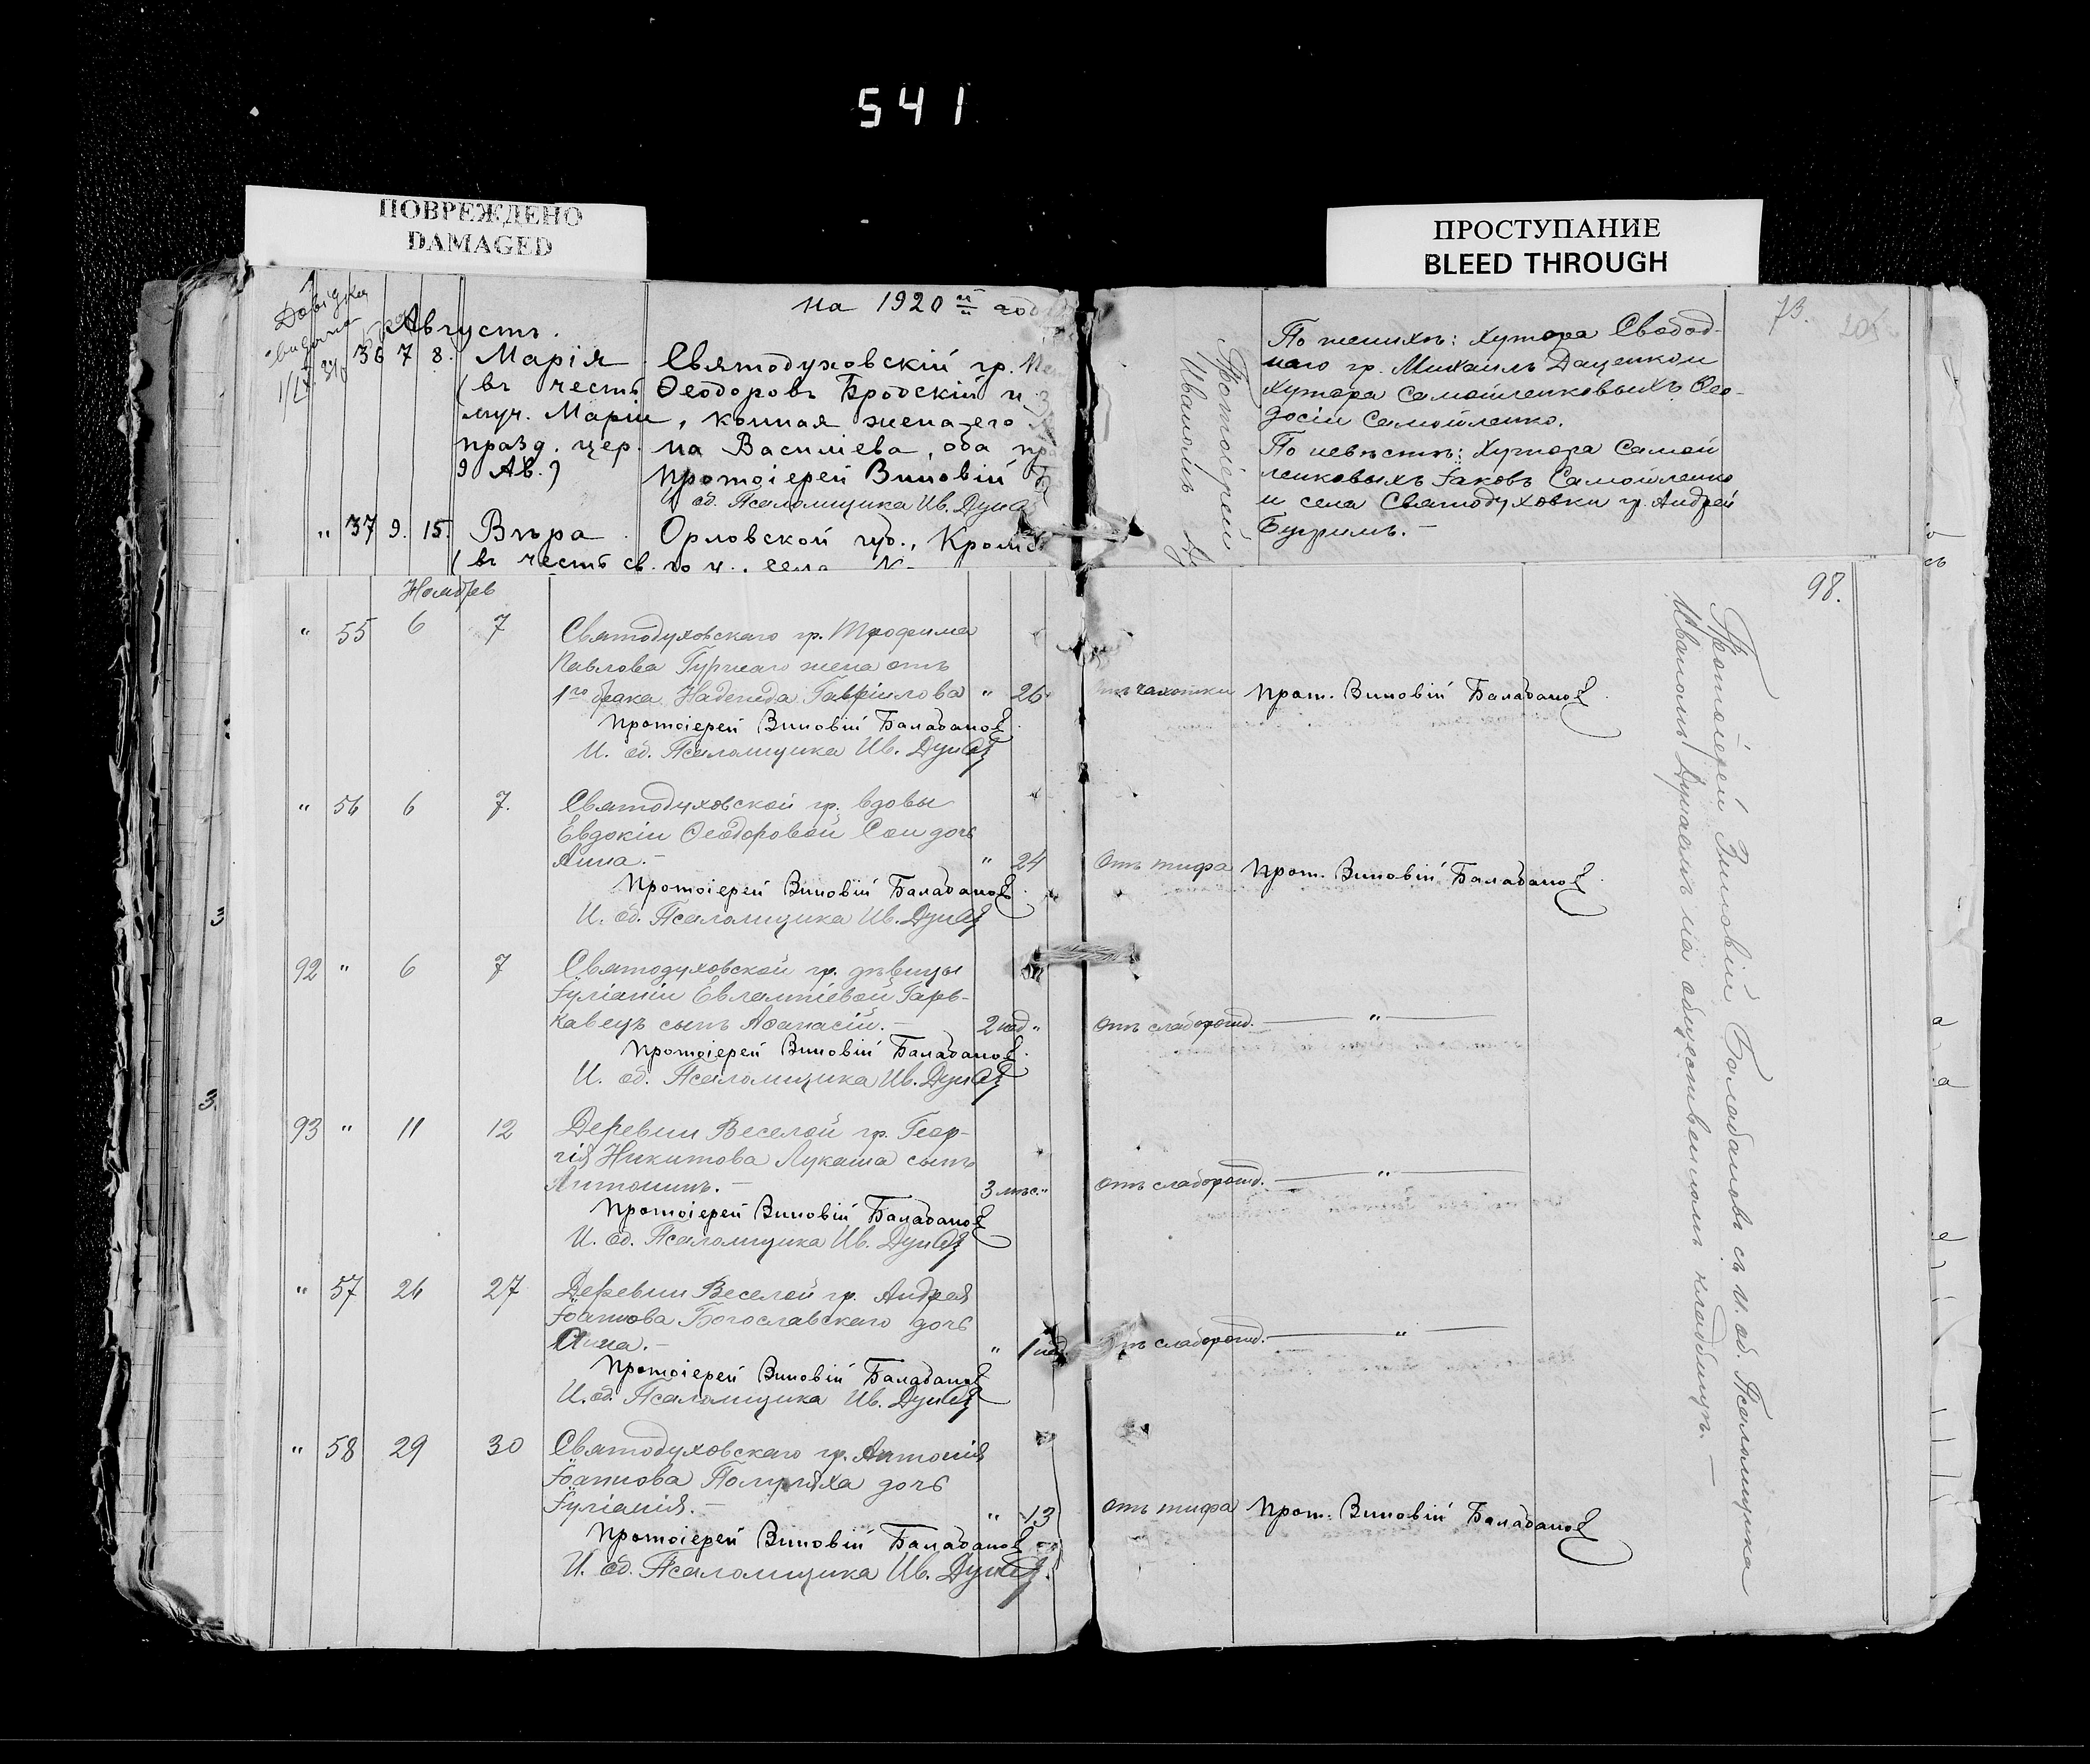 541
ПОВРЕЖДЕНО
DAMAGED
ПРОСТУПАНИЕ
BLEED THROUGH
на 1920 й год
Августъ.
36 7 8. Марія Святодуховскій гр.
(въ честь Ѳеодоровъ Бродскій и
муч. Маріи, конная жена его
празд. цер. на Василіева, оба пр
9 Ав.) Протоіерей Зиновій
об. Псаломщика Ив. Дун
" 37 9. 15. Вѣра Орловской губ., Кромс
(въ честь св.
73.
По женихѣ: Хутора Свобод-
наго гр. Михаилъ Даценко и
Хутора Самойленковыхъ Ѳео-
досій Самойленко.
По невѣстѣ: Хутора Самой
ленковыхъ Іаковъ Самойленко
и села Святодуховки гр. Андрей
Бугримъ.-
Протоіерей
Иваномъ
Ноябрь
" 55 6 7 Святодуховскаго гр. Трофима
Павлова Гурнаго жена отъ
1го брака Надежда Гавріилова " 26 отъ чахотки Прот. Зиновій Балабановъ
Протоіерей Зиновій Балабановъ
И. об. Псаломщика Ив. Дунай
" 56 6 7. Святодуховской гр. вдовы
Евдокіи Ѳеодоровой Сои дочь
Анна.- " 24 отъ тифа Прот. Зиновій Балабановъ
Протоіерей Зиновій Балабановъ
И. об. Псаломщика Ив. Дунай
92 " 6 7 Святодуховской гр. дѣвицы
Іуліаніи Евлампіевой Гарь-
кавецъ сынъ Аѳанасій.- 2 нед " отъ слаборожд. — " —
Протоіерей Зиновій Балабановъ
И. об. Псаломщика Ив. Дунай
93 " 11 12 Деревни Веселой гр. Геор-
гія Никитова Лукаша сынъ
Антонинъ.- 3 мѣс. " отъ слаборожд. — " —
Протоіерей Зиновій Балабановъ
И. об. Псаломщика Ив. Дунай
" 57 26 27 Деревни Веселой гр. Андрея
Іоаннова Богославскаго дочь
Анна.- " 1 нед. отъ слаборожд. — " —
Протоіерей Зиновій Балабановъ
И. об. Псаломщика Ив. Дунай
" 58 29 30 Святодуховскаго гр. Антонія
Іоаннова дочь
Іуліанія.- " 13 отъ тифа Прот. Зиновій Балабановъ
Протоіерей Зиновій Балабановъ
И. об. Псаломщика Ив. Дунай.
98.
Протоіерей Зиновій Балабановъ съ и. об. Псаломщика
Иваномъ Дунаемъ на общественномъ кладбищѣ.-